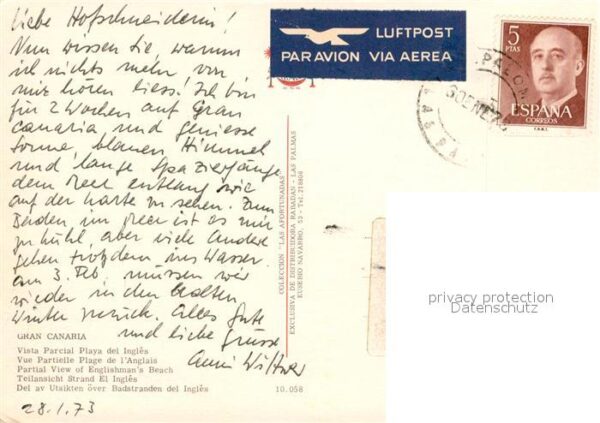 Liebe Hofschneiderin!
Nun wissen Sie, warum
ich nichts mehr von
mir hören liess! Ich bin
für 2 Wochen auf Gran
Canaria und geniesse
Sonne, blauen Himmel
und lange Spaziergänge
dem Meer entlang wie
auf der Karte zu sehen. Zum
Baden im Meer ist es mir
zu kühl, aber viele Andere
gehen trotzdem ins Wasser.
Am 3. Feb. müssen wir
wieder in den kalten
Winter zurück. Alles Gute
und liebe Grüsse
LUFTPOST
PAR AVION VIA AEREA
5
PTAS
ESPAÑA
CORREOS
F.N.M.T.
COLECCION "LAS AFORTUNADAS"
EXCLUSIVA DE DISTRIBUIDORA BADADAN - LAS PALMAS
EUSEBIO NAVARRO, 53 - Tel. 218808
privacy protection
Datenschutz
GRAN CANARIA
Vista Parcial Playa del Inglés
Vue Partielle Plage de l'Anglais
Partial View of Englishman's Beach
Teilansicht Strand El Inglés
Del av Utsikten över Badstranden del Inglés
10.058
28.1.73